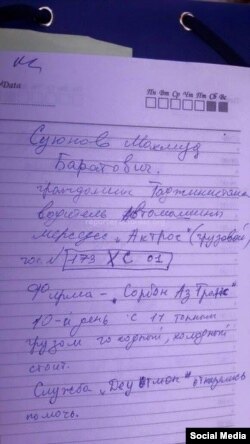 Data
Пн Вт Ср Чт Пт Сб Вс
Суюнов Махмуд
Баротович.
гражданин Таджикистана
водитель Автомашины
мерседес "Актрос" (грузовой)
гос N 173 ХС 01
Фирма - "Сорбон Аз Транс"
10-й день с 11 тонным
грузом голодный, холодный
стоит.
Служба отказалась
помочь.
Social Media